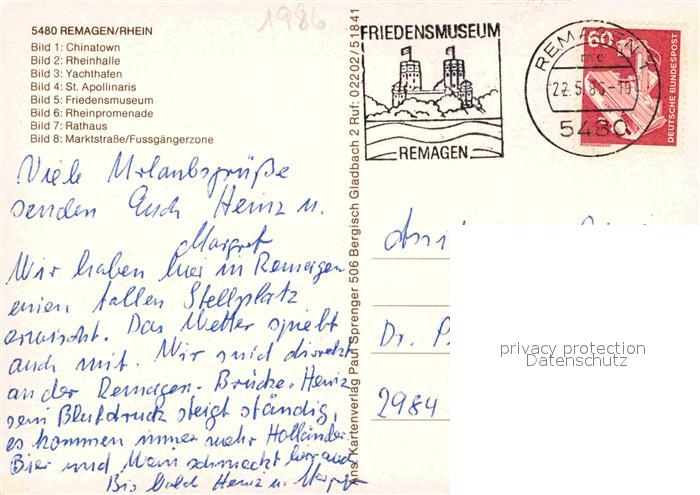 1986
5480 REMAGEN/RHEIN
Bild 1: Chinatown
Bild 2: Rheinhalle
Bild 3: Yachthafen
Bild 4: St. Apollinaris
Bild 5: Friedensmuseum
Bild 6: Rheinpromenade
Bild 7: Rathaus
Bild 8: Marktstraße/Fussgängerzone
Viele Urlaubsgrüße
senden Euch Heinz u.
Margret
Wir haben hier in Remagen
einen tollen Stellplatz
erwischt. Das Wetter spielt
auch mit. Wir sind direkt
an der Remagen-Brücke. Heinz
sein Blutdruck steigt ständig,
es kommen immer mehr Holländer.
Bier und Wein schmeckt
Bis bald Heinz u. Margret
Ans. Kartenverlag Paul Sprenger 506 Bergisch Gladbach 2 Ruf: 02202/51841
FRIEDENSMUSEUM
REMAGEN
REMAGEN 1
22.5.86-19
5480
60
DEUTSCHE BUNDESPOST
RÖNTGENGERÄT
Dr. P
2984
privacy protection
Datenschutz